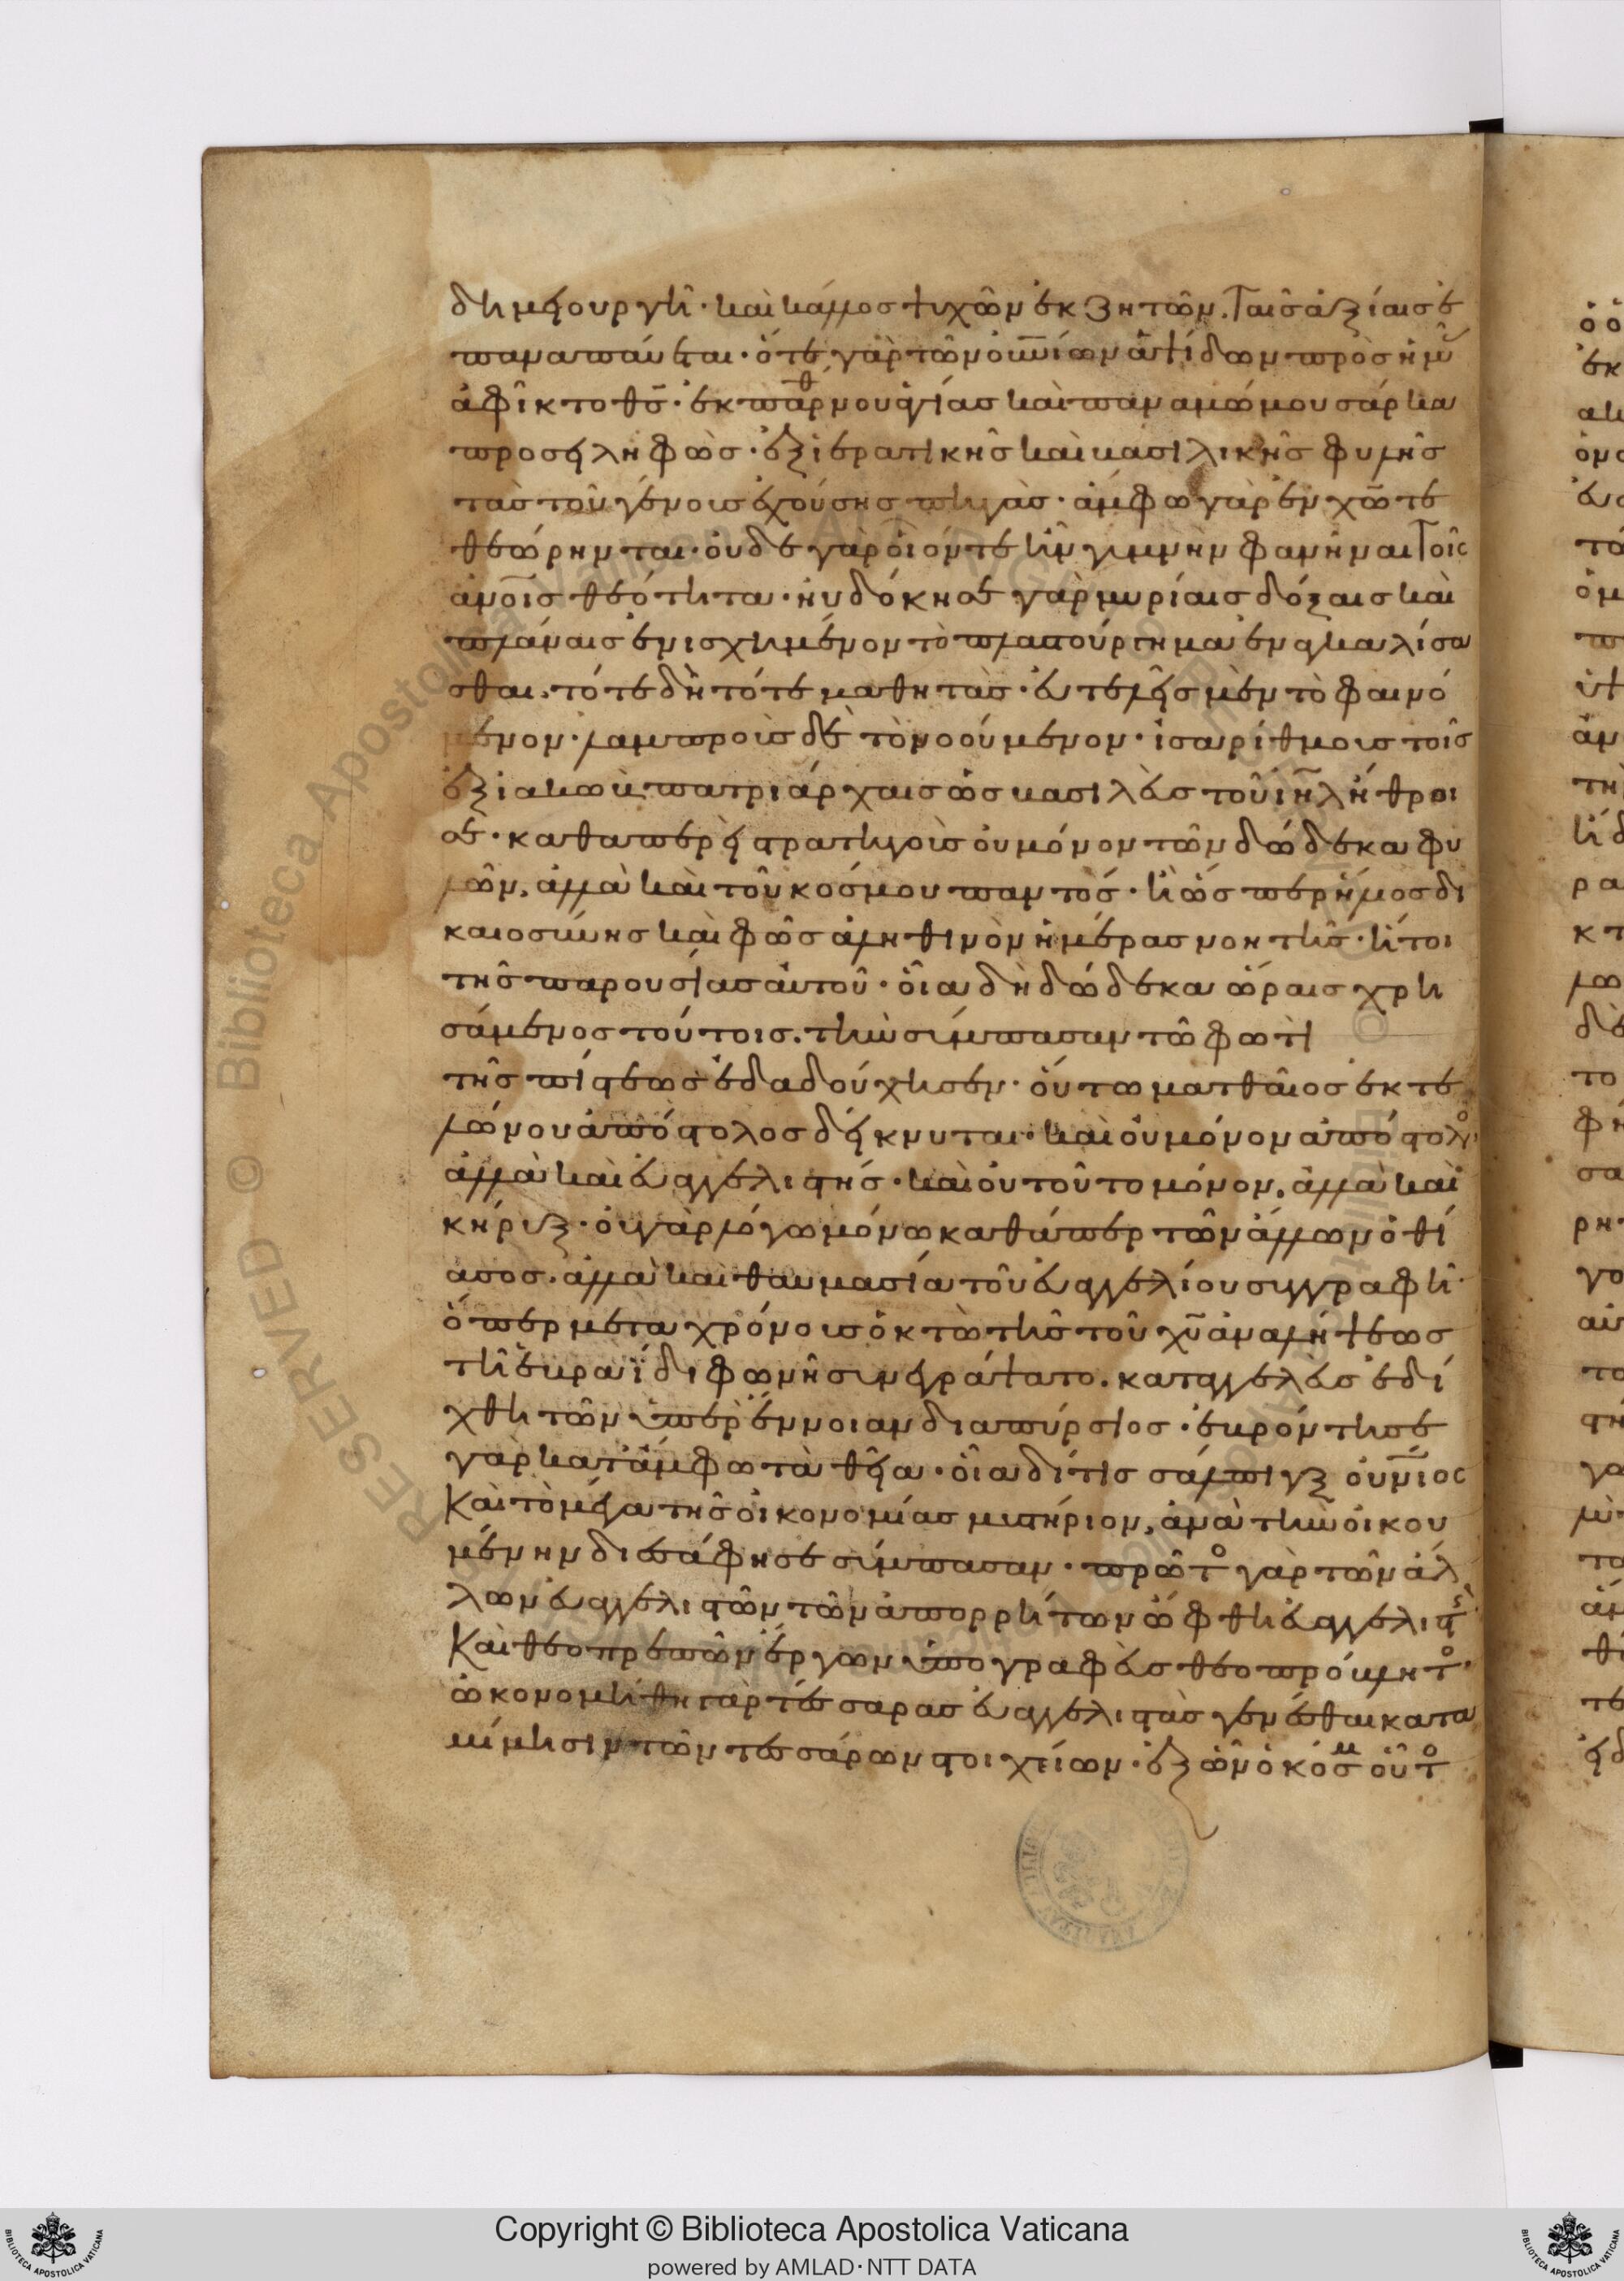 δημειουργεῖ· καὶ κάλλος ψυχῶν ἐκζητῶν. ταῖς ἀξίαις ἐ
παναπαύεται· ὅτε γὰρ τῶν οὐνίων ἀψίδων πρὸς ἡμᾶς
ἀφῖκτο θς· ἐκ παρθνου ἁγίας καὶ παναμώμου σάρκα
προσειληφὼς· ἐξ ἱερατικῆς καὶ βασιλικῆς φυλῆς
τὰς τοῦ γένους ἐχούσης πηγὰς· ἄμφω γὰρ ἐν χῶ τε
θεώρηνται· οὐδὲ γὰρ οἷόν τε ἦν γυμνὴν φανῆναι τοῖς
ἀνοις θεότητα· ηὐδόκησε γὰρ μυρίαις δόξαις καὶ
πλάναις ἐνισχημένον τὸ πλαστούργημα ἐναγκαλίσα
σθαι. τότε δὴ τότε μαθητὰς· εὐτελεῖς μὲν τὸ φαινό
μενον· λαμπροὺς δὲ τὸ νοούμενον· ἰσαρίθμους τοῖς
ἐξ ἰακὼβ πατριάρχαις ὡς βασιλεὺς τοῦ ιηλ ἤθροι
σε· καθάπερ στρατηγοὺς οὐ μόνον τῶν δώδεκα φυ
λῶν, ἀλλὰ καὶ τοῦ κόσμου παντός· ἢ ὥσπερ ἥλιος δι
καιοσύνης καὶ φῶς ἀληθινὸν ἡμέρας νοητῆς· ἤτοι
τῆς παρουσίας αὐτοῦ· οἷα δὴ δώδεκα ὥραις χρη
σάμενος τούτοις. τὴν σύμπασαν τῶ φωτὶ
τῆς πίστεως ἐδαδούχησεν· οὕτω ματθαῖος ἐκ τε
λώνου ἀπόστολος δείκνυται· καὶ οὐ μόνον ἀπόστολο
ἀλλὰ καὶ εὐαγγελιστής· καὶ οὐ τοῦτο μόνον, ἀλλὰ καὶ
κήρυξ· οὐ γὰρ λόγω μόνω καθάπερ τῶν ἄλλων ὁ θί
ασος. ἀλλὰ καὶ θαυμασία τοῦ εὐαγγελίου συγγραφῆ·
ὅπερ μετὰ χρόνους ὀκτὼ τῆς τοῦ χυ ἀναλήψεως
τῆ ἑβραΐδι φωνῆ συνεγράψατο. καταγγελεὺς ἐδεί
χθη τῶν ὑπὲρ ἔννοιαν διαπύρσιος· ἐβρόντησε
γὰρ κατάμφω τὰ θεῖα· οἷα δή τις σάλπιγξ οὐνιος
καὶ τὸ μέγα τῆς οἰκονομίας μυστήριον, ἀνὰ τὴν οἰκου
μένην διεσάφησε σύμπασαν· πρῶτο γὰρ τῶν ἄλ
λων εὐαγγελιστῶν τῶν ἀπορρήτων ὤφθη εὐαγγελιστὴ
καὶ θεοπρεπῶν ἔργων ὑπογραφεὺς θεοπρόβλητο·
ὠκονομήθη γὰρ τέσσαρας εὐαγγελιστὰς γενέσθαι κατὰ
μίμησιν τῶν τεσσάρων στοιχείων· ἐξ ὧν ὁ κόσμ οὗτο